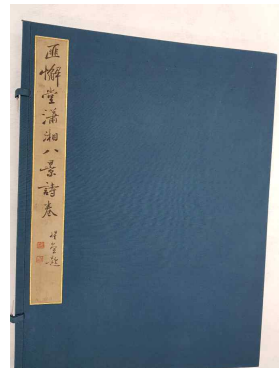 匪懈堂瀟湘八景詩卷